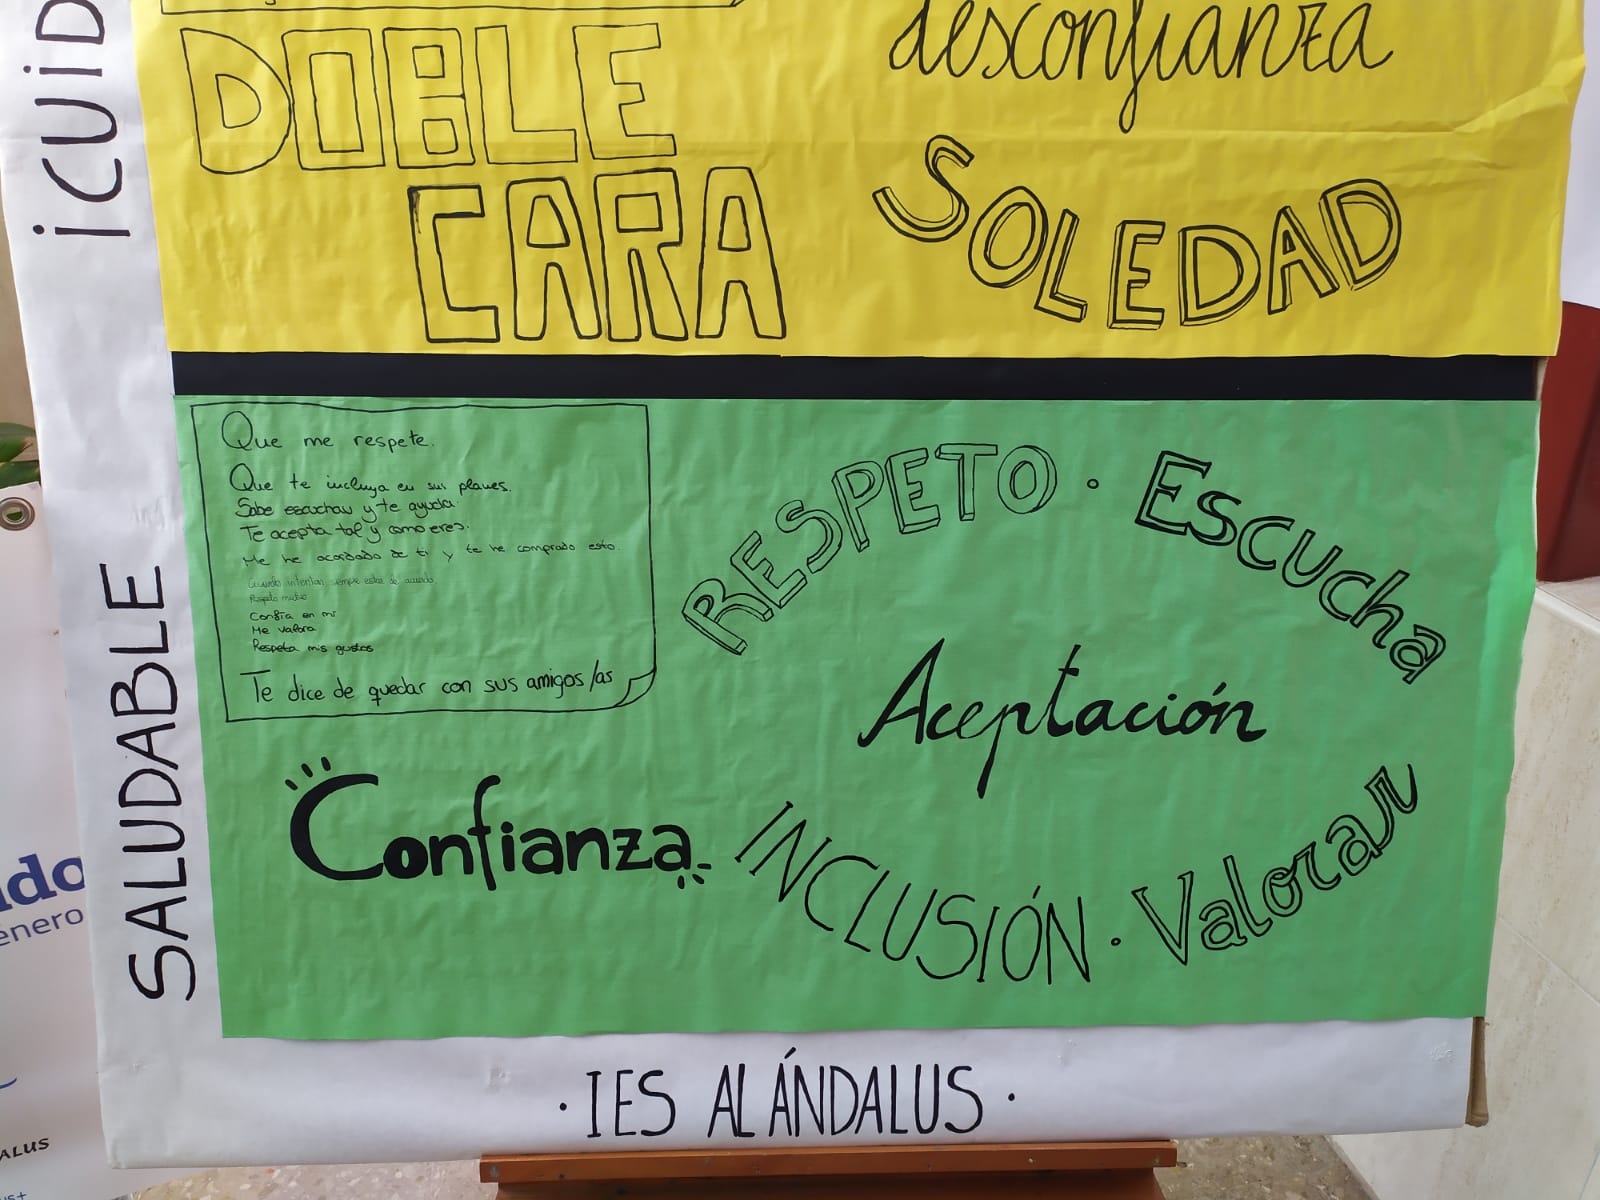 ¡CUID
DOBLE
CARA
desconfianza
SOLEDAD
SALUDABLE
Que me respete.
Que te incluya en sus planes.
Sabe escuchar y te ayuda.
Te acepta tal y como eres.
Me he acordado de ti y te he comprado esto.
Respeto mutuo
Confía en mi
Me valora
Respeta mis gustos
Te dice de quedar con sus amigos/as
RESPETO · Escucha
Aceptación
Confianza
INCLUSIÓN · Valorar
· IES AL ÁNDALUS ·
ndo
enero
ALUS
us+